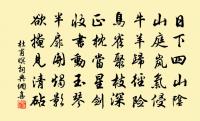 日下四山陰
山庭嵐氣侵
牛羊歸徑險
鳥雀聚枝深
正枕當星劍
收書動玉琴
半扉開燭影
欲掩見清砧
杜甫暝詞典網書